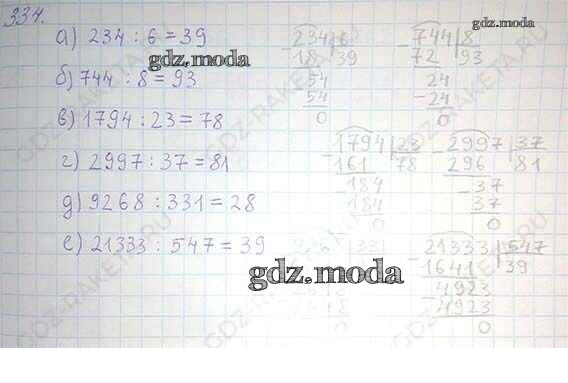 334.
а) 234 : 6 = 39
б) 744 : 8 = 93
в) 1794 : 23 = 78
г) 2997 : 37 = 81
д) 9268 : 331 = 28
е) 21333 : 547 = 39
gdz.moda
gdz.moda
gdz.moda
- 234 | 6
18 39
54
54
0
- 744 | 8
72 93
24
- 24
0
- 1794 | 23
161 78
184
184
0
- 2997 | 37
296 81
- 37
37
0
- 21333 | 547
1641 39
- 4923
4923
0
0
GDZ-RAKETA.RU
GDZ-RAKETA.RU
GDZ-RAKETA.RU